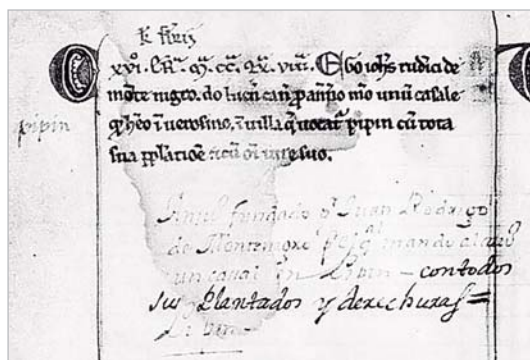 k. febrii
O
xxvi. ERA. M. CC. LX. viii. Ego ioħs rudici de
mōte nigro. do lucn̄ can̄. p anīo mīo unū casale
q̄ ħeo ī uerosino, ī uilla q̄ uocat̄ pipin cū tota
sua plātiōe ⁊ cū oī iure suo.
pipin
fundado pr Juan Rodrigo
de Montenegro mando
un casal en Pipin – con todos
sus Plantados y derechuras =